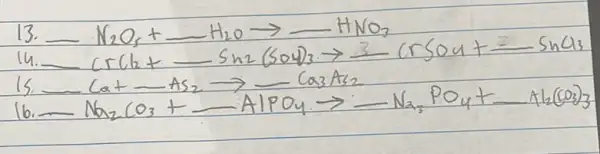 13. __ N2O5 + __ H2O → __ HNO3
14. __ CrCl2 + __ Sn2(SO4)3 → 3 CrSO4 + 2 SnCl3
15. __ Ca + __ As2 → __ Ca3As2
16. __ Na2CO3 + __ AlPO4 → __ Na3PO4 + __ Al2(CO3)3